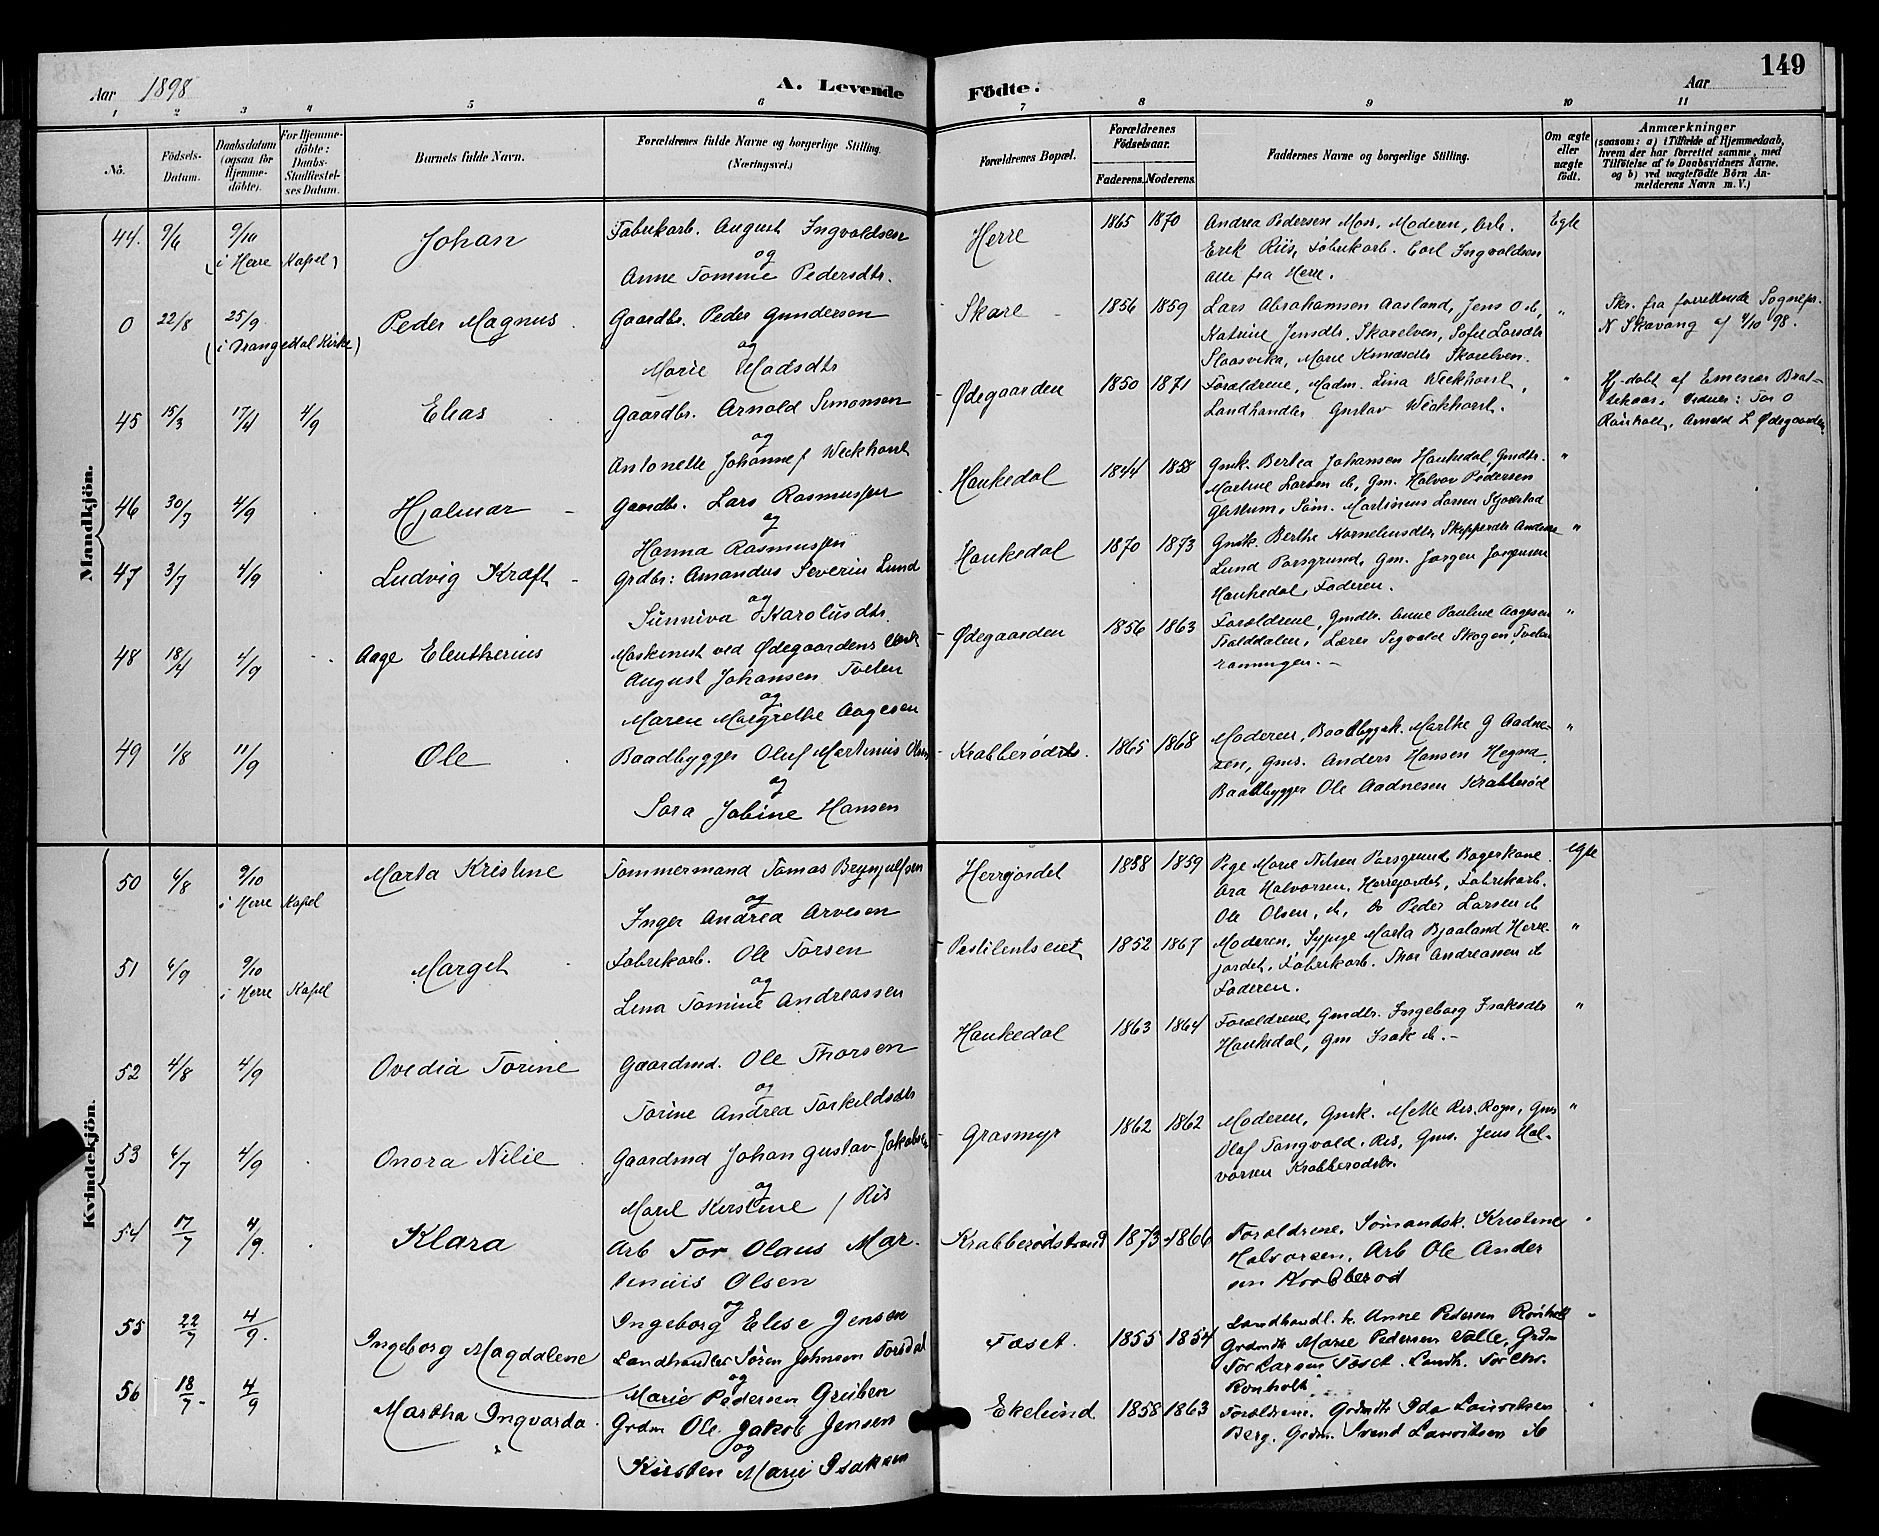 149
Aar 1898
A. Levende Födte.
Aar
1 2 3 4 5 6 7 8 9 10 11
No.
Födsels-Datum.
Daabsdatum (ogsaa for Hjemmedöbte).
For Hjemmedöbte: Daabs-Stadfæstelses Datum.
Barnets fulde Navn.
Forældrenes fulde Navne og borgerlige Stilling. (Næringsvei.)
Forældrenes Bopæl.
Forældrenes Födselsaar.
Faderens. Moderens.
Faddernes Navne og borgerlige Stilling.
Om ægte eller uægte födt.
Anmærkninger
(saasom: a) i Tilfælde af Hjemmedaab, hvem der har forrettet samme, med Tilföielse af to Daabsvidners Navne. og b) ved uægtefödte Börn Anmelderens Navn m. V.)
Mandkjön.
44. 9/6 9/10 Johan Fabrikarb. August Ingvaldsen Herre 1865 1870 Andrea Pedersen Moss, Moderen, Arb. Egte
(i Herre Kapel) og Erik Riis, Fabrikarb. Carl Ingvaldsen
Anne Tomine Pedersdtr. Alle fra Herre.
0 22/8 25/9 Peder Magnus Gaardbr. Peder Gundersen Skare 1856 1859 Lars Abrahamsen Aasland, Jens O ib, " Skr. fra forrettende Sognepr.
(i Drangedal Kirke) og Katrine Jensdtr. Skarelven, Sofie Larsdtr N Skavang af 4/10 98.
Marie Madsdtr Slaasvika, Marie Knudsdtr Skarelven.
45 15/3 17/4 4/9 Elias Gaardbr. Arnold Simonsen Ødegaarden 1850 1871 Forældrene, Madm. Lina Weckhorst, " Hj-døbt af
og Landhandler Gustav Weckhorst. Vidner: Tor O
Antonette Johanne f Weckhorst Rønholt, Arnold L Ødegaarden
46 30/7 4/9 Hjalmar Gaardbr. Lars Rasmussen Haukedal 1844 1858 Gmk. Bertea Johansen Haukedal, Gmdtr. "
og Martine Larsen ib, Gm. Halvor Pedersen
Hanna Rasmussen Søm. Martinius Larsen
47 3/7 4/9 Ludvig Kraft Grdbr: Amandus Severin Lund Haukedal 1870 1873 Gmk. Berthe Korneliusdtr, Skipperdtr Andrea "
og Lund Porsgrund, Gm. Jørgen Jørgensen
Sunniva Karolusdtr. Haukedal, Faderen.
48 18/4 4/9 Aage Eleutherius Maskinist ved Ødegaardens Verk Ødegaarden 1856 1863 Forældrene, Gmdtr. Anne Pauline Aagesen "
August Johansen Tveten Lærer Sigvald Skogen,
og
Maren Margrethe Aagesen
49 1/8 11/9 Ole Baadbygger Oluf Martinius Olsen Krabberødstr. 1865 1868 Moderen, Baadbyggk. Marthe G Aadne- "
og sen, Gms. Anders Hansen Hegna,
Sara Jobine Hansen Baadbygger Ole Aadnesen Krabberød
Kvindekjön.
50 6/8 9/10 Marta Kristine Tømmermand Tomas Brynjulfsen Herrejordet 1858 1859 Pige Marie Nilsen Porsgrund, Bagerkone Egte
i Herre Kapel og Ara Halvorsen, Herrejordet, Fabrikarb.
Inger Andrea Arvesen Ole Olsen, ib, Do Peder Larsen ib
51 6/9 9/10 Marget Fabrikarb. Ole Torsen Pestilentseiet 1852 1867 Moderen, Sypige Marta Bjaaland Herre- "
i Herre Kapel og jordet, Fabrikarb. Thor Andreassen ib
Lina Tomine Andreassen Faderen.
52 4/8 4/9 Ovedia Torine Gaardmd. Ole Thorsen Haukedal 1863 1864 Forældrene, Gmdtr. Ingeborg Isaksdtr "
og Haukedal, Gm Isak ib. –
Torine Andrea Torkildsdtr
53 6/7 4/9 Onora Nilie Gaardmd Johan Gustav Jakobsen Grasmyr 1862 1862 Moderen, Gmk. Mette Ris, Rogn, Gms "
og Olaf Tangvald, Ris, Gms. Jens Hal-
Maril Kirstine f Ris vorsen Krabberødstr.
54 17/7 4/9. Klara Arb Tor Olaus Mar- Krabberødstrand 1873 1866 Forældrene, Sømandsk. Kristine "
tinius Olsen Halvorsen, Arb Ole Ander
og sen Krabberød
Ingeborg Elise Jensen
55 22/7 4/9. Ingeborg Magdalene Landhandler Søren Johnsen Forsdal Fæset. 1855 1854 Landhandl. k. Anne Pedersen Rønholt "
og Grdmdtr Marie Pedersen Valle, Grdm
Marie Pedersen Gruben Tor Larsen Fæset. Landh. Tor Chr.
Rønholt.
56 18/7. 4/9 Martha Ingvarda Grdm Ole Jakob Jensen Ekelund 1858 1863 Forældrene. Grdmdtr Ida Lauritsen "
og Berg. Grdm. Svend Lauritsen ib
Kirsten Marie Isaksen